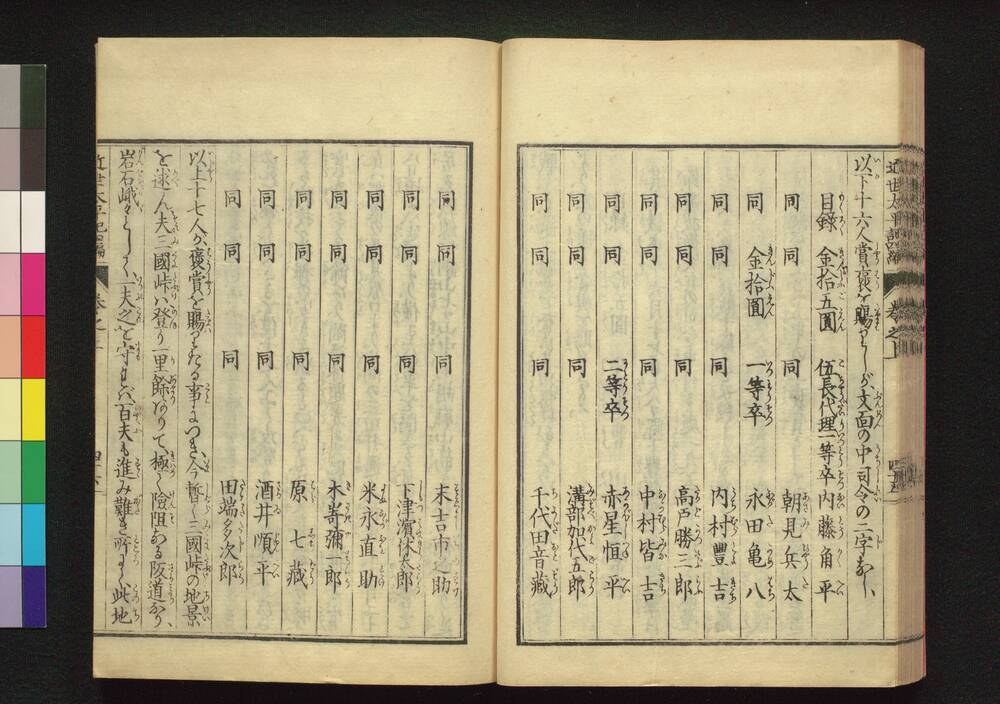 以下十六人賞褒を賜りしが文面の中司令の二字なし、
目錄 金拾五圓 伍長代理一等卒 內藤角平
同 同 同 朝見兵太
同 金拾圓 一等卒 永田亀八
同 同 同 內村豐吉
同 同 同 高戸勝二郎
同 同 同 中村皆吉
同 同 二等卒 赤星恒平
同 同 同 溝部加代五郎
同 同 同 千代田音藏
同 同 同 末吉市之助
同 同 同 下津濱休太郎
同 同 同 米永直助
同 同 同 木嵜彌一郎
同 同 同 原七藏
同 同 同 酒井順平
同 同 同 田端多次郎
以上十七人が褒賞を賜りたる事につき、今暫く三國峠の地景
を述ん夫三國峠ハ登り一里餘ありて、極て險阻なる阪道なり、
岩石峨々として、一夫之を守れバ百夫も進み難き所にて此地